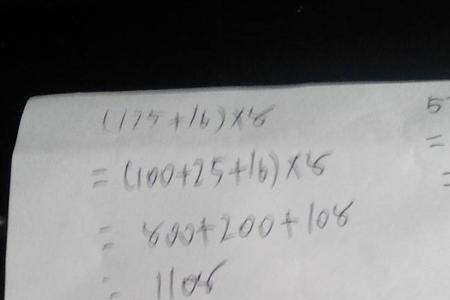 (125+16)×8
= (100+25+16)×8
= 800+200+108
= 1108
5
=
=